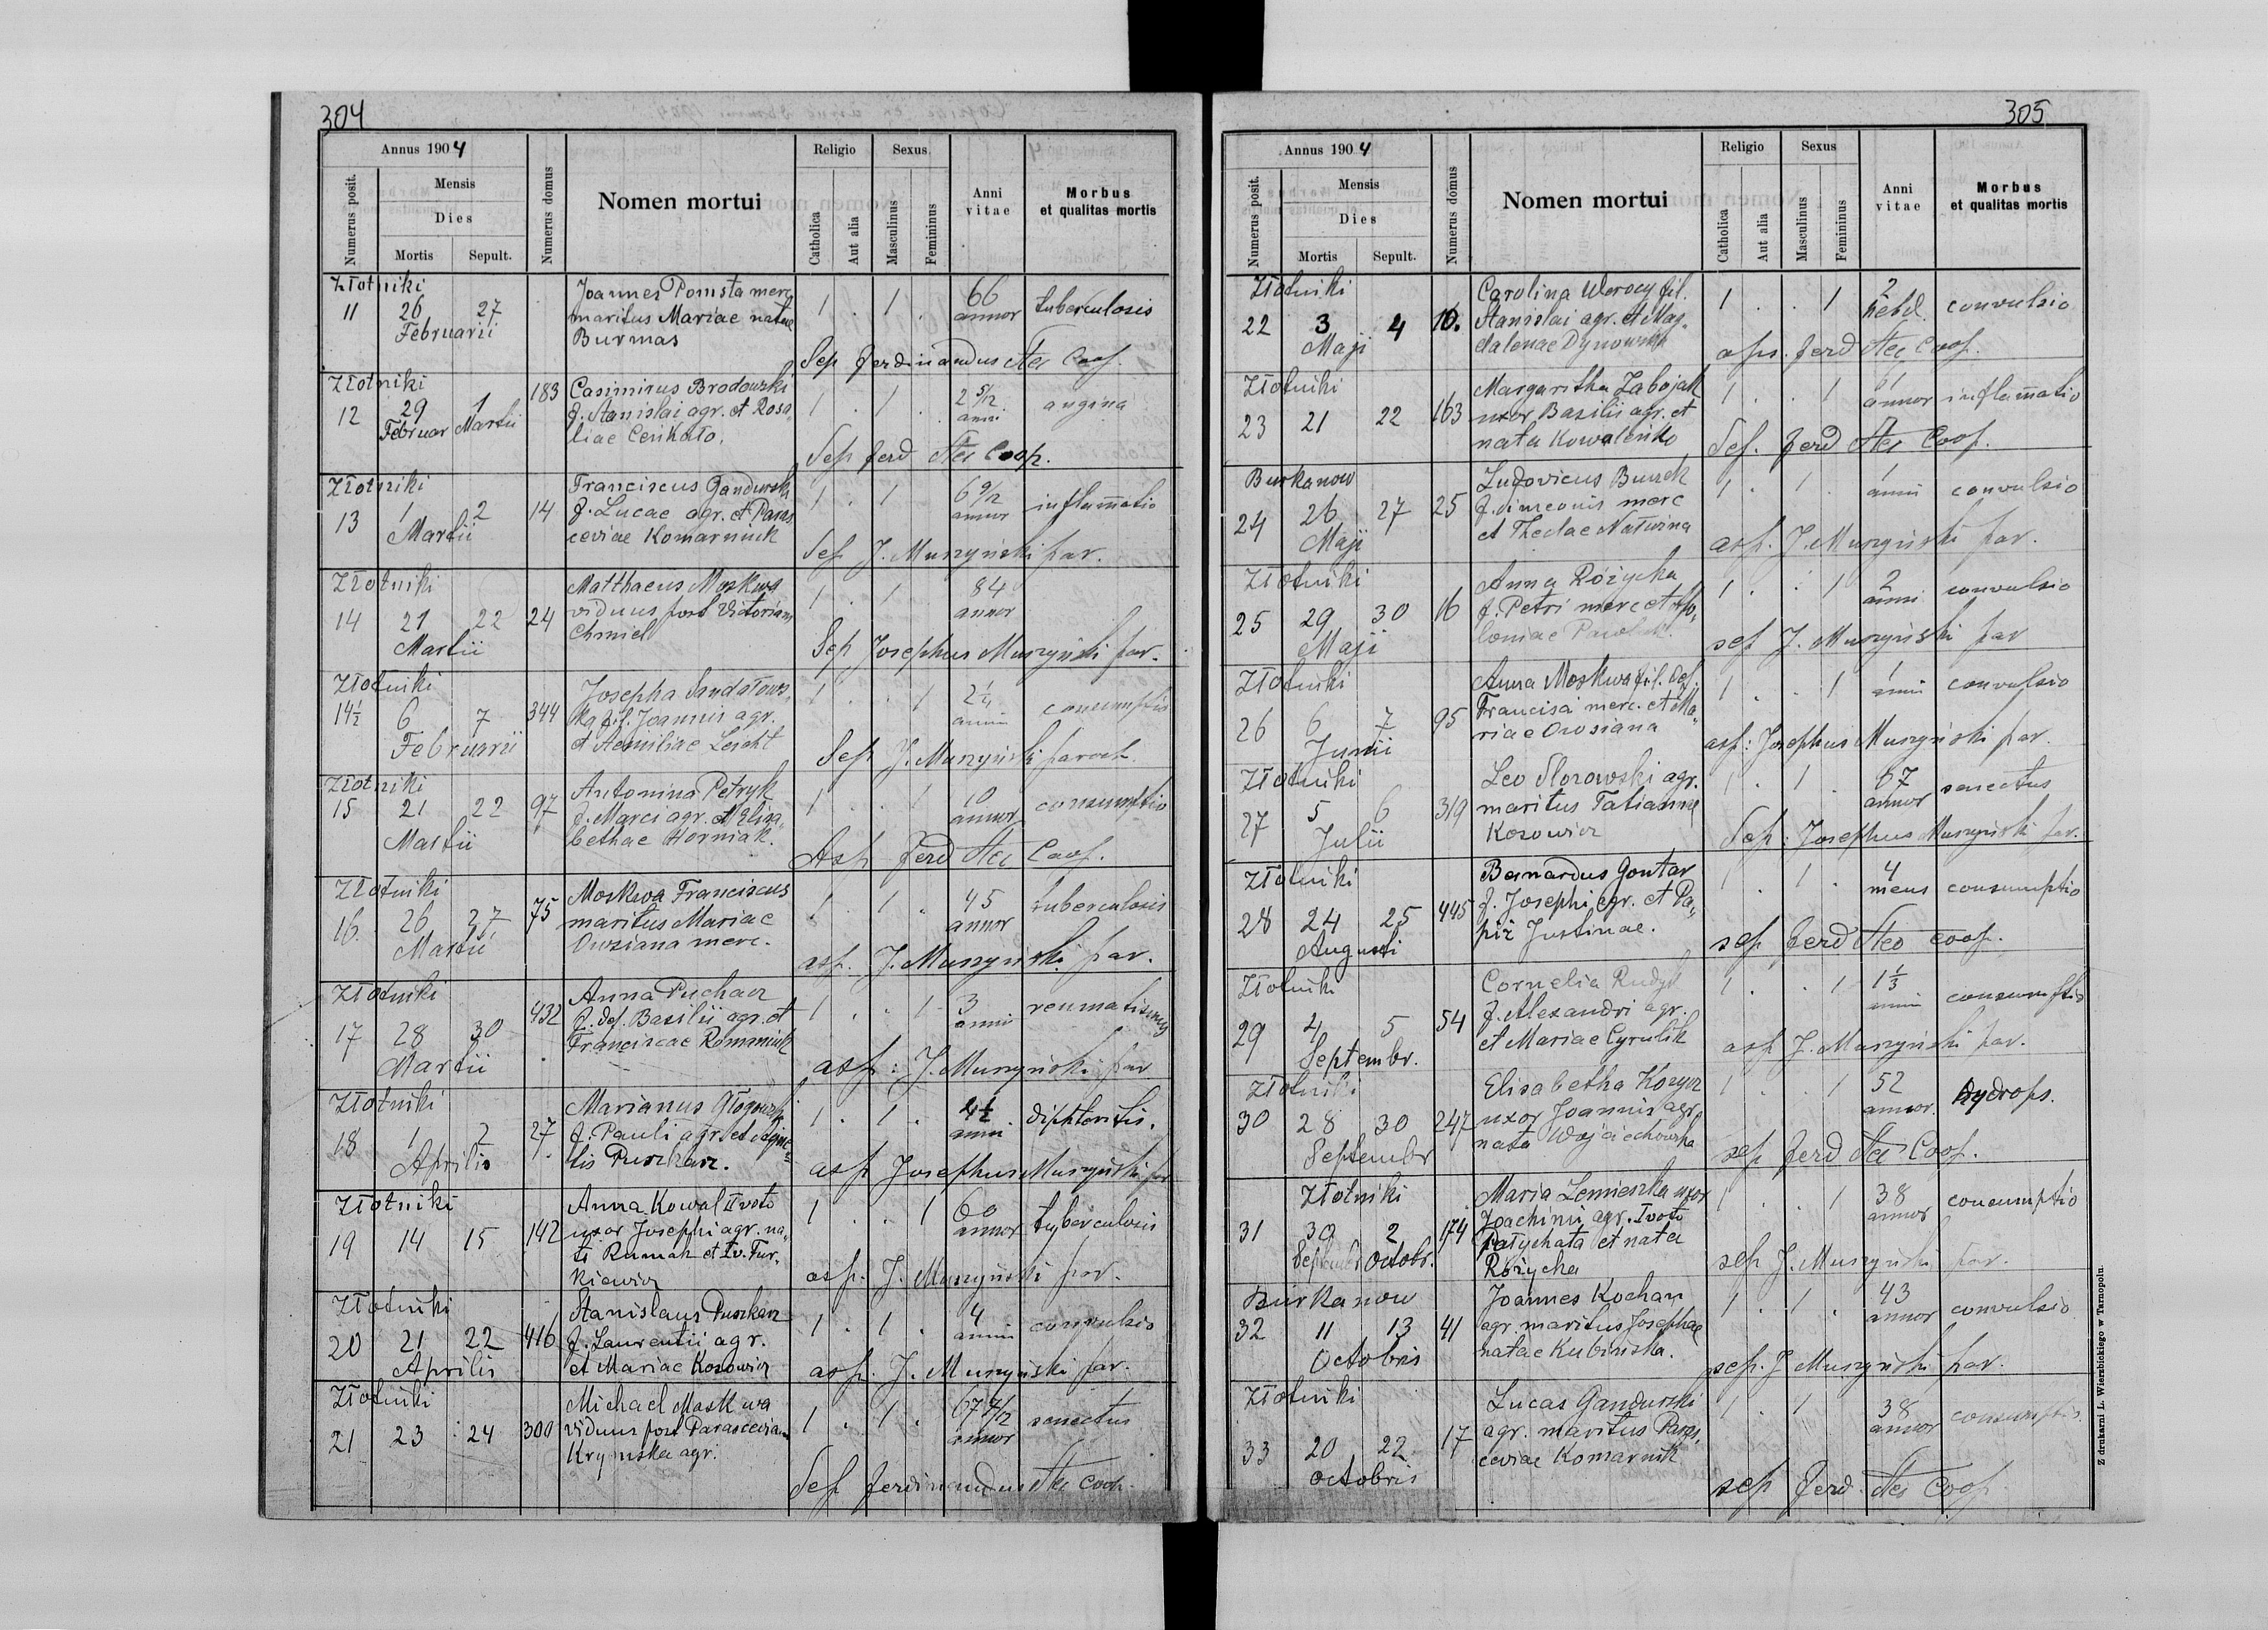 304
Annus 1904
Numerus posit.
Mensis
Dies
Mortis
Sepult.
Numerus domus
Nomen mortui
Religio
Catholica
Aut alia
Sexus
Masculinus
Femininus
Anni vitae
Morbus et qualitas mortis
Złotniki
11 26 27 Februarii
Joannes Pomsta merc
maritus Mariae natae
Burmas
1 . 1 . 66 annor tuberculosis
Sep Ferdinandus Coop.
Złotniki
12 29 Februar 1 Martii 183
Casimirus Brodowski
f. Stanislai agr. et Rosa,
liae
1 . 1 . 2 5/12 anni angina
Sep Ferd Coop.
Złotniki
13 1 2 Martii 14
Franciscus Gandurski
f. Lucae agr. et Paras
ceviae Komarniuk
1 . 1 6 9/12 annor inflammatio
Sep J. Muszyński par.
Złotniki
14 21 22 Martii 24
Matthaeus Moskwa
viduus post Victoriam
Chmiel
1 . 1 84 annor
Sep Josephus Muszyński par.
Złotniki
14½ 6 7 Februarii 344
Josepha
ka f. Joannis agr.
et Aemiliae
1 . . 1 anni consumptio
Sep J. Muszyński paroch
Złotniki
15 21 22 Martii 97
Antonina Petryk
f. Marci agr. et Eliza,
bethae Horniak.
1 . . 1 10 annor consumptio
Asp Ferd Coop.
Złotniki
16. 26 27 Martii 75
Moskwa Franciscus
maritus Mariae
Owsiana merc.
1 . 1 . 45 annor tuberculosis
asp. J. Muszyński par.
Złotniki
17 28 30 Martii 432
Anna Puchacz
f. def. Basilii agr. et
Franciscae Romaniuk
1 . . 1 3 anni reumatismus
asp: J. Muszyński par
Złotniki
18 1 2 Aprilis 27
Marianus Głogowski
f. Pauli agr. et Agne=
tis Puszkarz.
1 . 1 . 4½ anni diphteritis.
asp Josephus Muszyński par
Złotniki
19 14 15 142
Anna Kowal II voto
uxor Josephi agr. na,
ta et Iv. Tur,
kiewicz
1 . . 1 60 annor tuberculosis
asp. J. Muszyński par.
Złotniki
20 21 22 Aprilis 416
Stanislaus Puszkarz
f. Laurentii agr.
et Mariae Kosowicz
1 . 1 . 4 anni convulsio
asp. J. Muszyński par.
Złotniki
21 23 24 300
Michael Moskwa
viduus post Parasceviam
Krymska agr.
1 . 1 . 67 7/12 annor senectus
Sep Ferdinandus Coop.
305
Annus 1904
Numerus posit.
Mensis
Dies
Mortis
Sepult.
Numerus domus
Nomen mortui
Religio
Catholica
Aut alia
Sexus
Masculinus
Femininus
Anni vitae
Morbus et qualitas mortis
Złotniki
22 3 4 Maji 10.
Carolina fil.
Stanislai agr. et Mag,
dalenae Dynowska
1 . . 1 2 hebd. convulsio
asp. Ferd Coop.
Złotniki
23 21 22 163
Margaritha Zabojak
uxor Basilii agr. et
nata Kowalenko
1 . . 1 61 annor inflammatio
Sep. Ferd Coop.
Burkanow
24 26 27 Maji 25
Ludovicus Burek
f. Simeonis merc
et Theclae
1 . 1 . 1 anni convulsio
asp. J. Muszyński par.
Złotniki
25 29 30 Maji 16
Anna Różycka
f. Petri merc et Apo,
loniae
1 . . 1 2 anni convulsio
sep J. Muszyński par
Złotniki
26 6 7 Junii 95
Anna Moskwa fil. def.
Francisa merc. et Ma,
riae Owsiana
1 . . 1 1 anni convulsio
asp: Josephus Muszyński par.
Złotniki
27 5 6 Julii 319
Leo agr.
maritus Tatianae
Kosowicz
1 . 1 . 67 annor senectus
Sep: Josephus Muszyński par.
Złotniki
28 24 25 Augusti 445
Bernardus Gontar
f. Josephi agr. et Pa,
piż Justinae.
1 . 1 . 4 mens consumptio
sep Ferd coop.
Złotniki
29 4 5 Septembr. 54
Cornelia Rudyk
f. Alexandri agr.
et Mariae Cyrulik
1 . . 1 1⅓ anni consumptio
asp J. Muszyński par.
Złotniki
30 28 30 Septembr 247
Elisabetha Kozyrz
uxor Joannis agr.
nata Wojciechowska
1 . . 1 52 annor. hydrops.
sep Ferd Coop.
Złotniki
31 30 Septembr 2 Octobr. 174
Maria Lemieszka uxor
Joachimi agr. I voto
Patychata et nata
Różycka
1 . . 1 38 annor consumptio
sep J. Muszyński par.
Burkanow
32 11 13 Octobris 41
Joannes Kochan
agr. maritus Josephae
natae Kubińska.
1 . 1 . 43 annor convulsio
sep. J Muszyński par.
Złotniki
33 20 22 Octobris 17
Lucas Gandurski
agr. maritus Paras,
ceviae Komarnik
1 . 1 38 annor consumptio
sep Ferd. Coop.
Z drukarni L. Wierzbickiego w Tarnopolu.